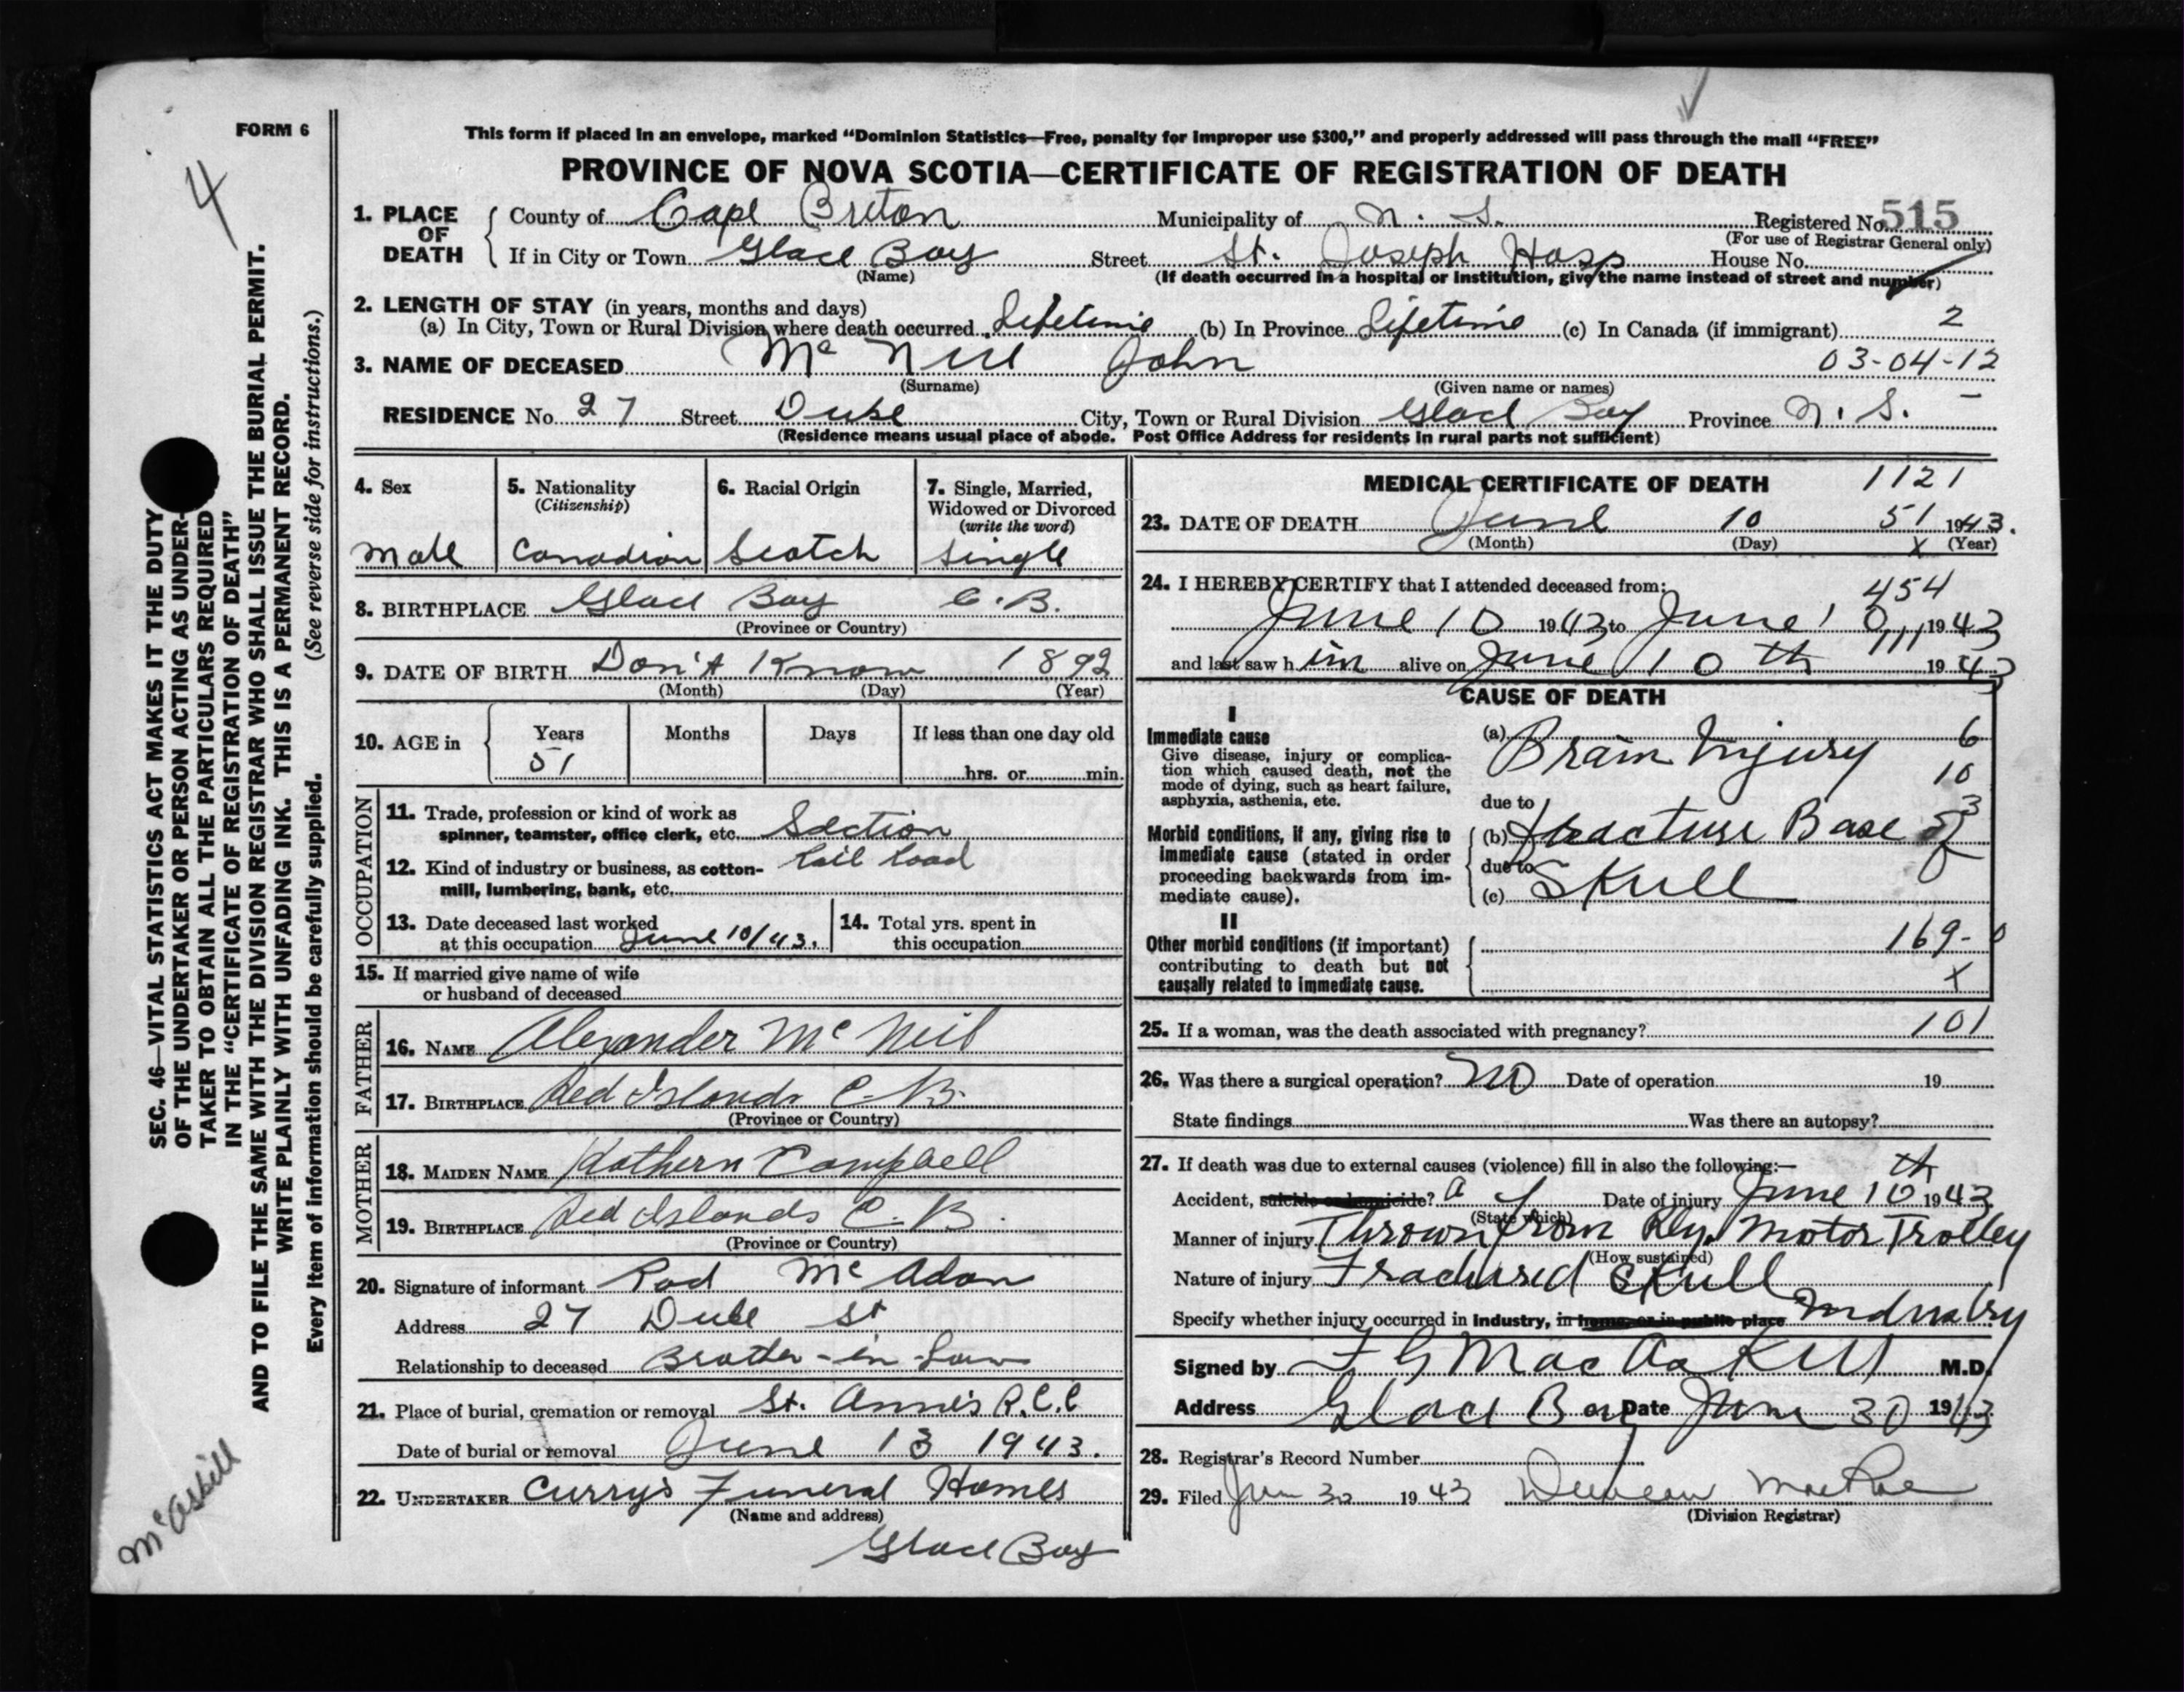 FORM 6
4
This form if placed in an envelope, marked “Dominion Statistics—Free, penalty for improper use $300,” and properly addressed will pass through the mail “FREE”
PROVINCE OF NOVA SCOTIA—CERTIFICATE OF REGISTRATION OF DEATH
1. PLACE OF DEATH { County of Cape Breton Municipality of N. S. Registered No. 515
(For use of Registrar General only)
If in City or Town Glace Bay Street St. Joseph Hosp House No.
(Name) (If death occurred in a hospital or institution, give the name instead of street and number)
2. LENGTH OF STAY (in years, months and days)
(a) In City, Town or Rural Division where death occurred Lifetime (b) In Province Lifetime (c) In Canada (if immigrant) 2
3. NAME OF DECEASED Mc Neil John 03-04-12
(Surname) (Given name or names)
RESIDENCE No. 27 Street Duke City, Town or Rural Division Glace Bay Province N. S. -
(Residence means usual place of abode. Post Office Address for residents in rural parts not sufficient)
4. Sex 5. Nationality (Citizenship) 6. Racial Origin 7. Single, Married, Widowed or Divorced (write the word)
Male Canadian Scotch Single
8. BIRTHPLACE Glace Bay C.B.
(Province or Country)
9. DATE OF BIRTH Don't Know 1892
(Month) (Day) (Year)
10. AGE in { Years Months Days If less than one day old
51 hrs. or min.
OCCUPATION
11. Trade, profession or kind of work as
spinner, teamster, office clerk, etc. Section
12. Kind of industry or business, as cotton- Rail Road
mill, lumbering, bank, etc.
13. Date deceased last worked
at this occupation June 10/43.
14. Total yrs. spent in
this occupation
15. If married give name of wife
or husband of deceased
FATHER
16. NAME Alexander Mc Neil
17. BIRTHPLACE Red Islands C.B.
(Province or Country)
MOTHER
18. MAIDEN NAME Kathern Campbell
19. BIRTHPLACE Red Islands C.B.
(Province or Country)
20. Signature of informant Rod Mc Adam
Address 27 Duke St
Relationship to deceased Brother-in-Law
21. Place of burial, cremation or removal St. Anne's R.C.C
Date of burial or removal June 13 1943.
22. UNDERTAKER Curry's Funeral Homes
(Name and address)
Glace Bay
MEDICAL CERTIFICATE OF DEATH 1121
23. DATE OF DEATH June 10 51 1943.
(Month) (Day) X (Year)
24. I HEREBY CERTIFY that I attended deceased from: 454
June 10 1943 to June 10 1943
and last saw him alive on June 10th 1943
CAUSE OF DEATH
I
Immediate cause
Give disease, injury or complica-
tion which caused death, not the
mode of dying, such as heart failure,
asphyxia, asthenia, etc.
(a) Brain Injury 6
10
due to 3
Morbid conditions, if any, giving rise to
immediate cause (stated in order
proceeding backwards from im-
mediate cause).
(b) Fracture Base of
due to
(c) Skull
II
Other morbid conditions (if important)
contributing to death but not
causally related to immediate cause.
169-0
X
25. If a woman, was the death associated with pregnancy? 101
26. Was there a surgical operation? No Date of operation 19
State findings Was there an autopsy?
27. If death was due to external causes (violence) fill in also the following:—
Accident, suicide or homicide? Date of injury June 10th 1943
(State which)
Manner of injury Thrown from Rly. Motor Trolley
(How sustained)
Nature of injury Fractured Skull
Specify whether injury occurred in industry, in home, or in public place Industry
Signed by F G MacAskill M.D.
Address Glace Bay Date June 30 1943
28. Registrar's Record Number
29. Filed Jun 30 1943 Duncan MacRae
(Division Registrar)
SEC. 46—VITAL STATISTICS ACT MAKES IT THE DUTY
OF THE UNDERTAKER OR PERSON ACTING AS UNDER-
TAKER TO OBTAIN ALL THE PARTICULARS REQUIRED
IN THE “CERTIFICATE OF REGISTRATION OF DEATH”
AND TO FILE THE SAME WITH THE DIVISION REGISTRAR WHO SHALL ISSUE THE BURIAL PERMIT.
WRITE PLAINLY WITH UNFADING INK. THIS IS A PERMANENT RECORD.
Every item of information should be carefully supplied. (See reverse side for instructions.)
McAskill